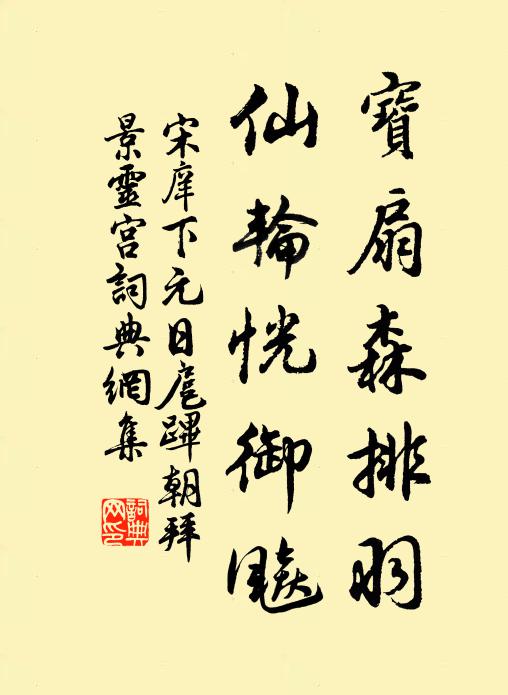 寶扇森排羽
仙輪恍御飈
宋庠下元日扈蹕朝拜
景靈宮詞典網集
詞典
网印